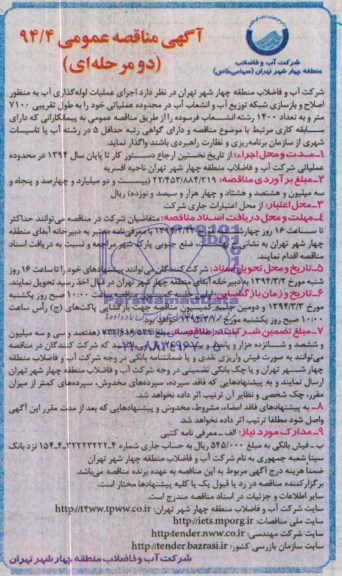 آگهی مناقصه عمومی ۹۴/۴
(دو مرحله‌ای)
شرکت آب و فاضلاب
منطقه چهار شهر تهران (سهامی خاص)
شرکت آب و فاضلاب منطقه چهار شهر تهران در نظر دارد اجرای عملیات لوله‌گذاری آب به منظور
اصلاح و بازسازی شبکه توزیع آب و انشعاب آب در محدوده عملیاتی خود را به طول تقریبی ۷۱۰۰
متر و به تعداد ۱۴۰۰ رشته انشعاب فرسوده را از طریق مناقصه عمومی به پیمانکارانی که دارای
سابقه کاری مرتبط با موضوع مناقصه و دارای گواهی رتبه حداقل ۵ در رشته آب یا تاسیسات
شهری از سازمان برنامه‌ریزی و نظارت راهبردی باشند واگذار نماید.
۱-مدت و محل اجراء: از تاریخ نخستین ارجاع دستور کار تا پایان سال ۱۳۹۴ در محدوده
عملیاتی شرکت آب و فاضلاب منطقه چهار شهر تهران ناحیه افسریه
۲-مبلغ برآوردی مناقصه: ۲۲/۴۵۳/۸۸۴/۲۱۹ (بیست و دو میلیارد و چهارصد و پنجاه و
سه میلیون و هشتصد و هشتاد و چهار هزار و سیصد و نوزده) ریال
۳-محل اعتبار: از محل اعتبارات جاری شرکت
۴-مهلت و محل دریافت اسناد مناقصه: متقاضیان شرکت در مناقصه می‌توانند حداکثر
تا ساعت ۱۶ روز چهارشنبه با معرفی‌نامه معتبر به دبیرخانه آبفای منطقه
چهار شهر تهران به نشانی ضلع جنوبی پارک شهر مراجعه و نسبت به دریافت اسناد
مناقصه اقدام نمایند.
۵-تاریخ و محل تحویل اسناد: شرکت کنندگان می‌توانند پیشنهادهای خود را تا ساعت ۱۶ روز
شنبه مورخ به دبیرخانه آبفای منطقه چهار شهر تهران در قبال اخذ رسید تحویل نمایند.
۶-تاریخ و زمان ۱۰:۰۰ صبح روز یکشنبه
مورخ ۱۳۹۴/۳/۳ و دومین پاکت‌های (ج) رأس ساعت
۱۰:۰۰ صبح روز یکشنبه مورخ
۷-مبلغ تضمین شرکت (هفتصد و سی و سه میلیون
و ششصد و شانزده هزار و پانصد که شرکت کنندگان در مناقصه
می‌توانند به صورت فیش واریزی نقدی و یا ضمانتنامه بانکی در وجه شرکت آب و فاضلاب منطقه
چهار شهر تهران و یا چک بانکی تضمینی در وجه شرکت آب و فاضلاب منطقه چهار شهر تهران
ارسال نمایند و به پیشنهادهایی که فاقد سپرده، سپرده‌های مخدوش، سپرده‌های کمتر از میزان
مقرر، چک شخصی و نظایر آن ترتیب اثر داده نخواهد شد.
۸- به پیشنهادهای فاقد امضاء، مشروط، مخدوش و پیشنهادهایی که بعد از مدت مقرر این آگهی
واصل شود مطلقا ترتیب اثر داده نخواهد شد.
۹-مدارک مورد نیاز: الف-معرفی نامه کتبی
ب-فیش بانکی به مبلغ ۵۴۵/۰۰۰ ریال به حساب جاری شماره نزد بانک
سینا شعبه جمهوری به نام شرکت آب و فاضلاب منطقه چهار شهر تهران
ضمنا هزینه درج آگهی مربوط به این مناقصه به عهده برنده مناقصه می‌باشد.
برگزارکننده مناقصه در رد یا قبول یک یا کلیه پیشنهادها مختار است.
سایر اطلاعات و جزئیات در اسناد مناقصه مندرج است.
سایت شرکت آب و فاضلاب منطقه چهار تهران: http://t4ww.tpww.co.ir
سایت ملی مناقصات: http://iets.mporg.ir
سایت شرکت مهندسی: http://tender.nww.co.ir
سایت سازمان بازرسی کشور: http://tender.bazrasi.ir
شرکت آب و فاضلاب منطقه چهار شهر تهران